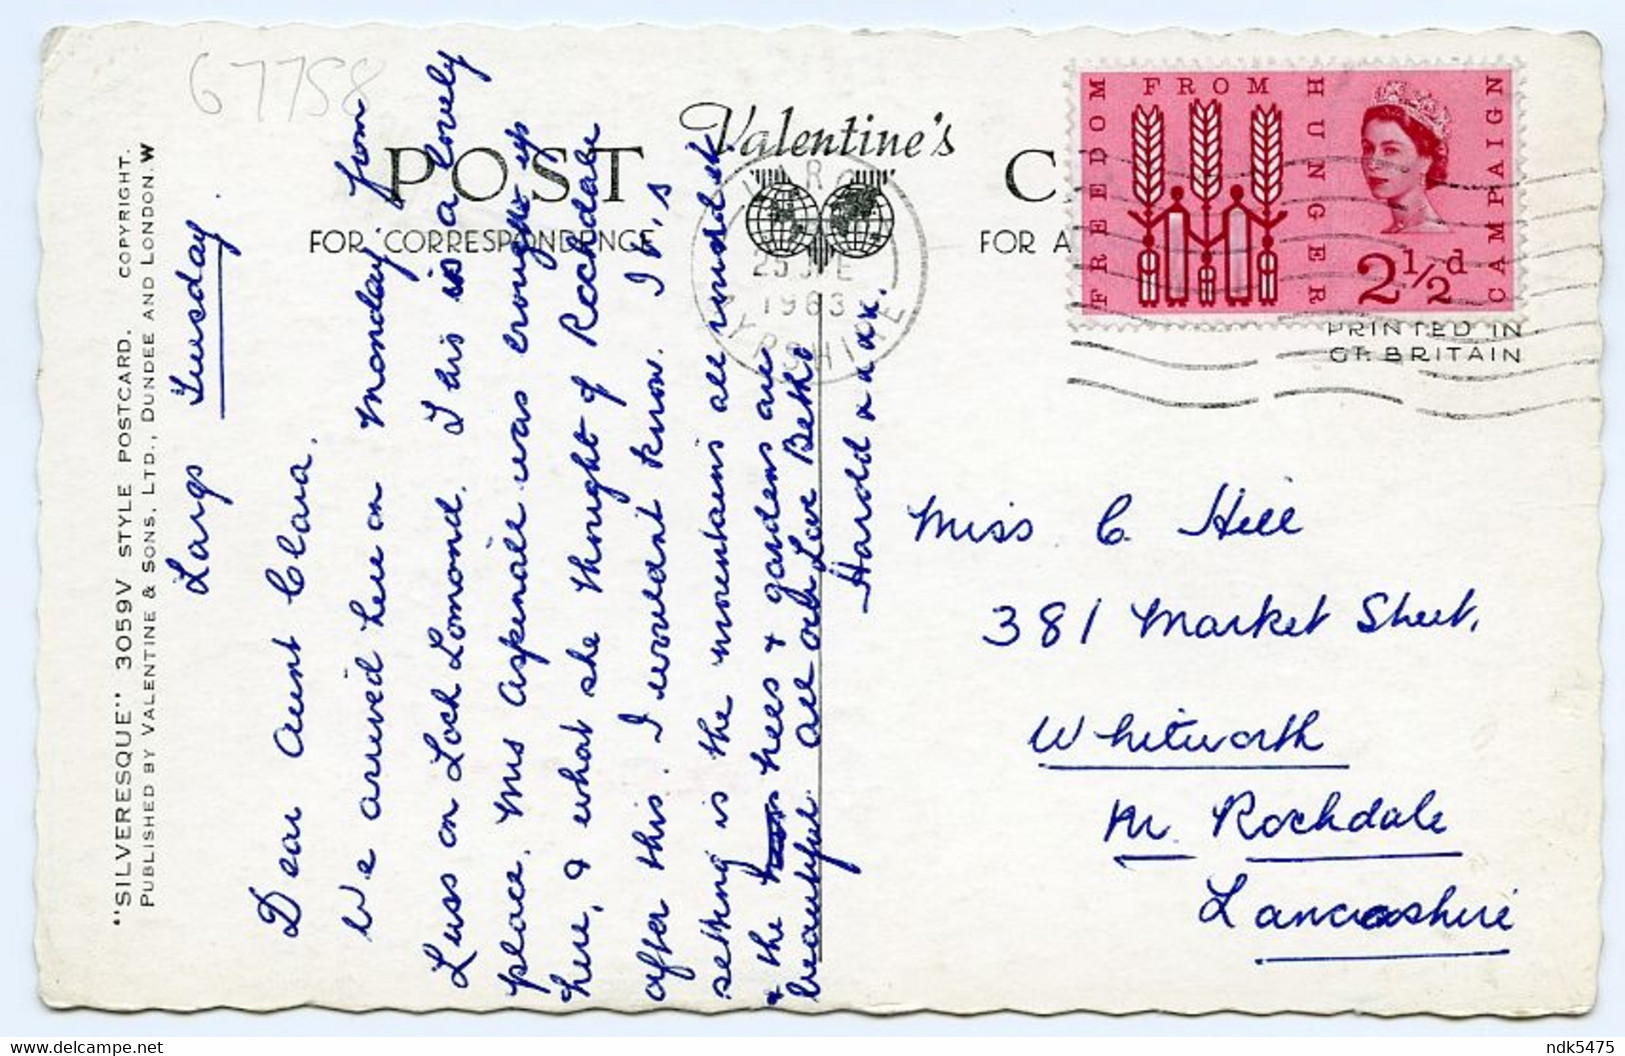 67758
"SILVERESQUE" 3059V STYLE POSTCARD. COPYRIGHT.
PUBLISHED BY VALENTINE & SONS, LTD., DUNDEE AND LONDON. W
POST
Valentine's
C
FOR CORRESPONDENCE
FOR A
25 JNE
1963
AYRSHIRE
FREEDOM FROM HUNGER CAMPAIGN
2½d
PRINTED IN
GT. BRITAIN
Largs Tuesday.
Dear Aunt Clara.
We arrived here on Monday from
Luss on Loch Lomond. This is a lovely
place. Mrs Aspenall was brought up
here, & what she thought of Rochdale
after this. I wouldnt know. It's
setting is the mountains all round it.
& the trees & gardens are
beautiful. All our Love Beth &
Harold xxxx.
Miss C. Hill
381 Market Street,
Whitworth
Nr. Rochdale
Lancashire
ndk5475